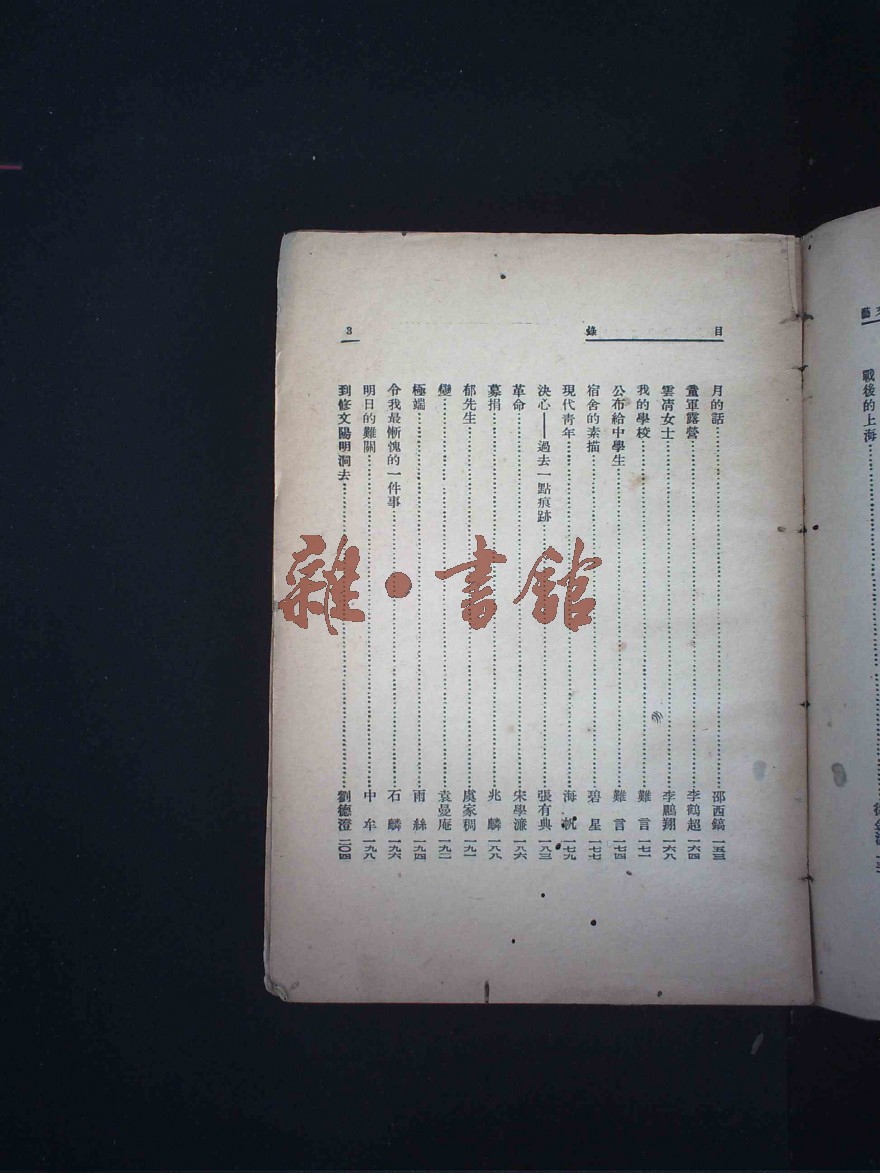 目錄
3
月的話 邵西鎬 一五三
童軍露營 李鶴超 一六四
雲凊女士 李鵬翔 一六八
我的學校 難言 一七一
公布給中學生 難言 一七四
宿舍的素描 碧星 一七七
現代靑年 海帆 一七九
決心——過去一點痕跡 張有典 一八三
革命 宋學濂 一八六
募捐 兆麟 一八八
郁先生 虞家稠 一九一
變 袁曼庵 一九二
極端 雨絲 一九四
令我最慚愧的一件事 石麟 一九六
明日的難關 中牟 一九八
到修文陽明洞去 劉德澄 二〇四
戰後的上海
雜·書舘